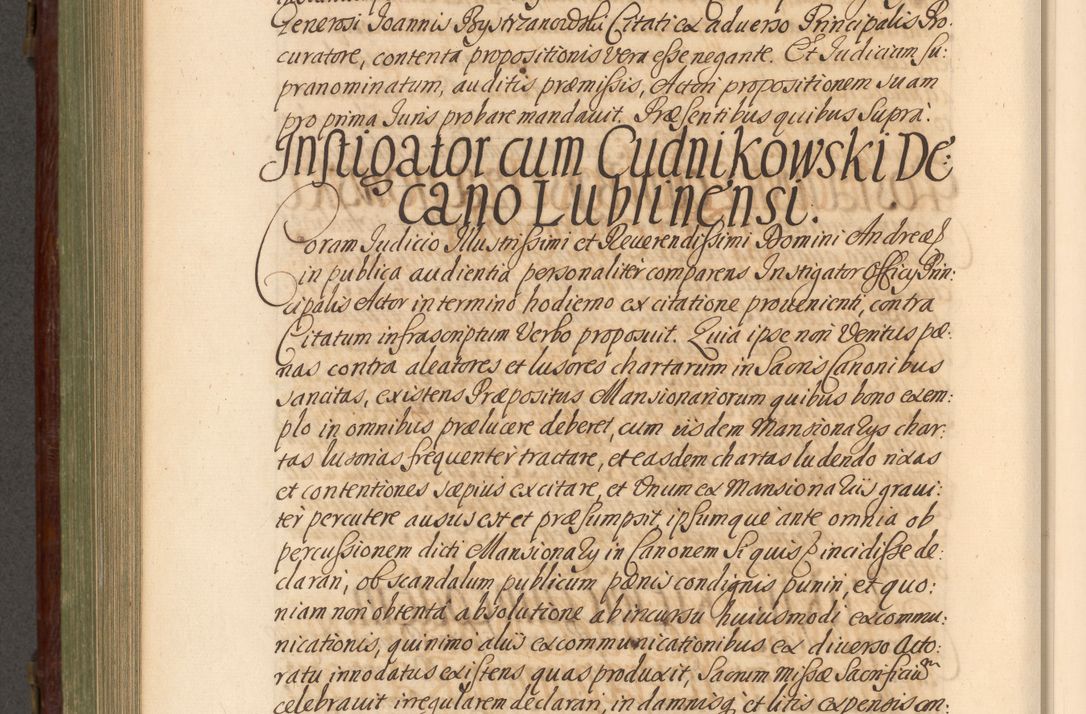 Generosi Joannis Bystrzanowski Citati ex adverso Principalis Pro:
curatore, contenta propositionis vera esse negante. Et Judicium su:
pranominatum, auditis præmissis, Actori propositionem suam
pro prima Juris probare mandavit. Præsentibus quibus Supra.
Instigator cum Cudnikowski De:
cano Lublinensi.
Coram Judicio Illustrissimi et Reverendissimi Domini Andreæ
in publica audientia personaliter comparens Instigator Officy Prin:
cipalis Actor in termino hodierno ex citatione provenienti, contra
Citatum infrascriptum Verbo proposuit. Quia ipse non Veritus pæ:
nas contra aleatores et lusores chartarum in Sacris Canonibus
sancitas, existens Præpositus Mansionariorum quibus bono exem:
plo in omnibus prælucere deberet, cum iisdem Mansionarys char:
tas lusorias frequenter tractare, et easdem chartas ludendo rixas
et contentiones sæpius excitare, et Unum ex Mansionariis gravi:
ter percutere ausus est et præsumpsit, ipsumque ante omnia ob
percussionem dicti Mansionary in Canonem Si quis incidisse de:
clarari, ob scandalum publicum pænis condignis puniri, et quo:
niam non obtenta absolutione ab incursu huiusmodi excommu:
nicationis, quinimo aliis excommunicationibus ex diverso Acto:
ratu innodatus existens quas produxit, Sacrum Missæ Sacrificium
celebravit irregularem declarari, in damnisq et litis expensis con: